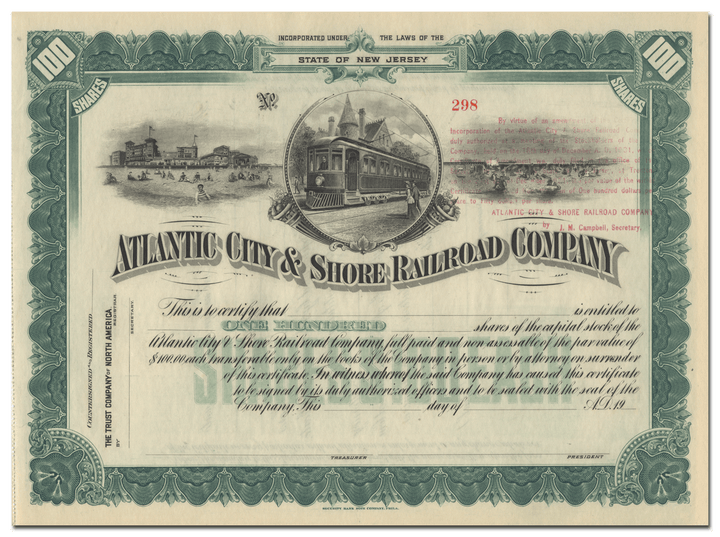 INCORPORATED UNDER THE LAWS OF THE
STATE OF NEW JERSEY
100
SHARES
100
SHARES
No.
298
By virtue of an
Incorporation of the Atlantic City & Shore Railroad
duty
of One hundred dollars
ATLANTIC CITY & SHORE RAILROAD COMPANY
by J. M. Campbell, Secretary.
ATLANTIC CITY & SHORE RAILROAD COMPANY
This is to certify that is entitled to
ONE HUNDRED shares of the capital stock of the
Atlantic City & Shore Railroad Company, full paid and non assessable of the par value of
$100.00 each transferable only on the books of the Company in person or by attorney on surrender
of this certificate. In witness whereof the said Company has caused this certificate
to be signed by its duly authorized officers and to be sealed with the seal of the
Company. This day of A.D. 19
TREASURER PRESIDENT
COUNTERSIGNED AND REGISTERED
THE TRUST COMPANY OF NORTH AMERICA
REGISTRAR
BY
SECRETARY
SECURITY BANK NOTE COMPANY, PHILA.